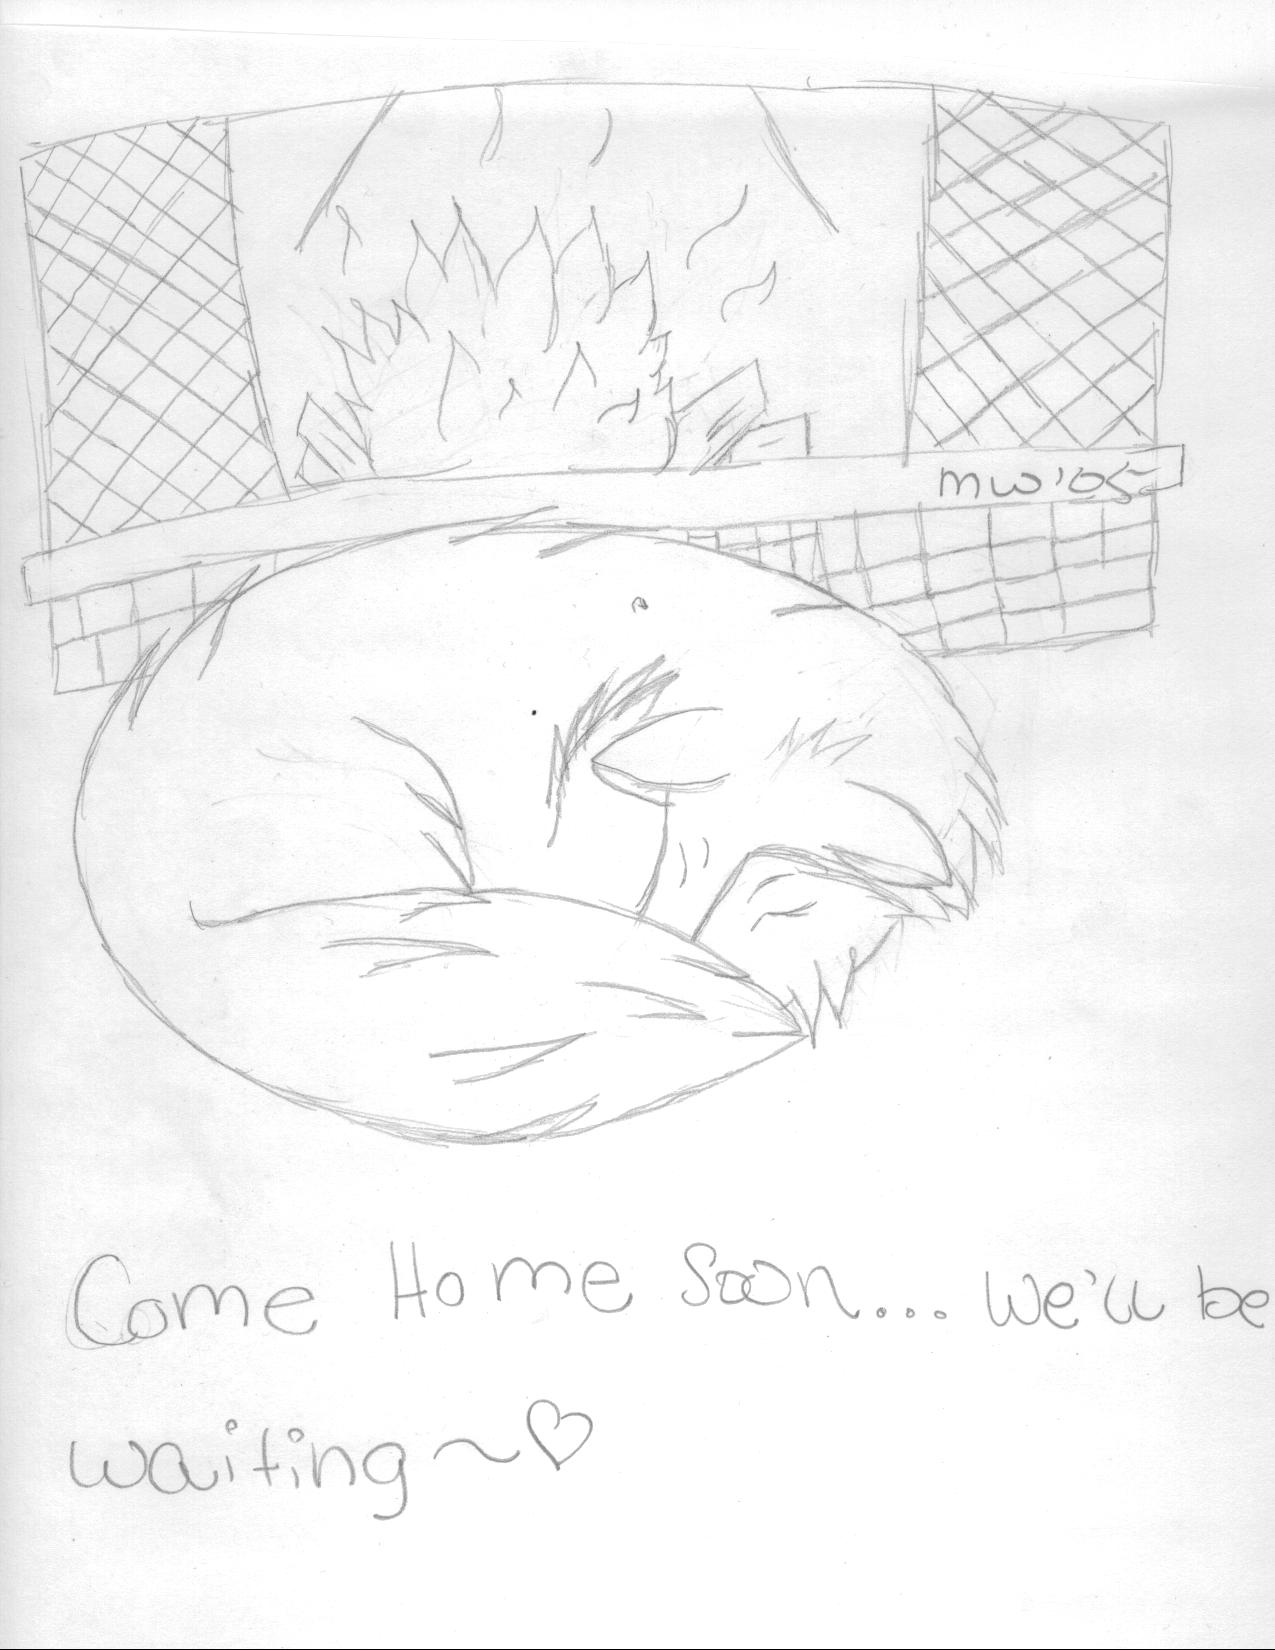 mw'05
Come Home Soon... We'll be
waiting~♡